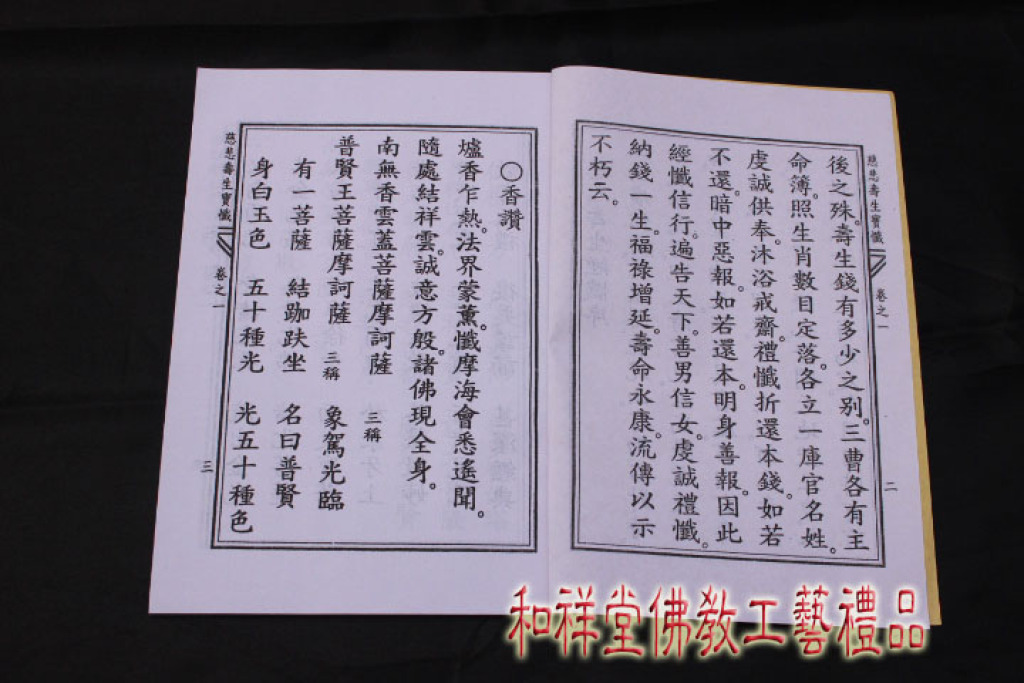 慈悲壽生寶懺 卷之一 二
後之殊。壽生錢有多少之别。三曹各有主
命簿。照生肖數目定落。各立一庫官名姓。
虔誠供奉。沐浴戒齋。禮懺折還本錢。如若
不還。暗中惡報。如若還本。明身善報。因此
經懺信行。遍告天下。善男信女。虔誠禮懺。
納錢一生。福祿增延。壽命永康。流傳以示
不朽云。
〇香讚
爐香乍熱。法界蒙薰。懺摩海會悉遙聞。
隨處結祥雲。誠意方殷。諸佛現全身。
南無香雲蓋菩薩摩訶薩 三稱
普賢王菩薩摩訶薩 三稱 象駕光臨
有一菩薩 結跏趺坐 名曰普賢
身白玉色 五十種光 光五十種色
慈悲壽生寶懺 卷之一 三
和祥堂佛教工藝禮品